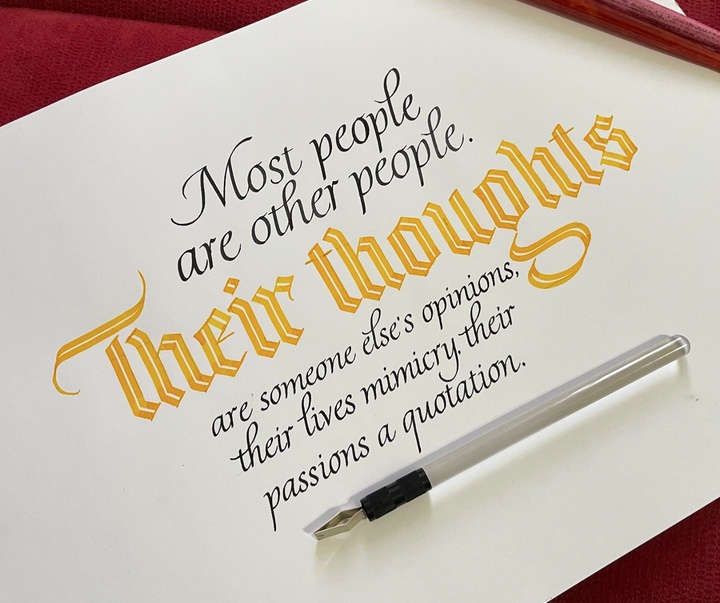 Most people
are other people.
Their thoughts
are someone else's opinions,
their lives mimicry, their
passions a quotation.